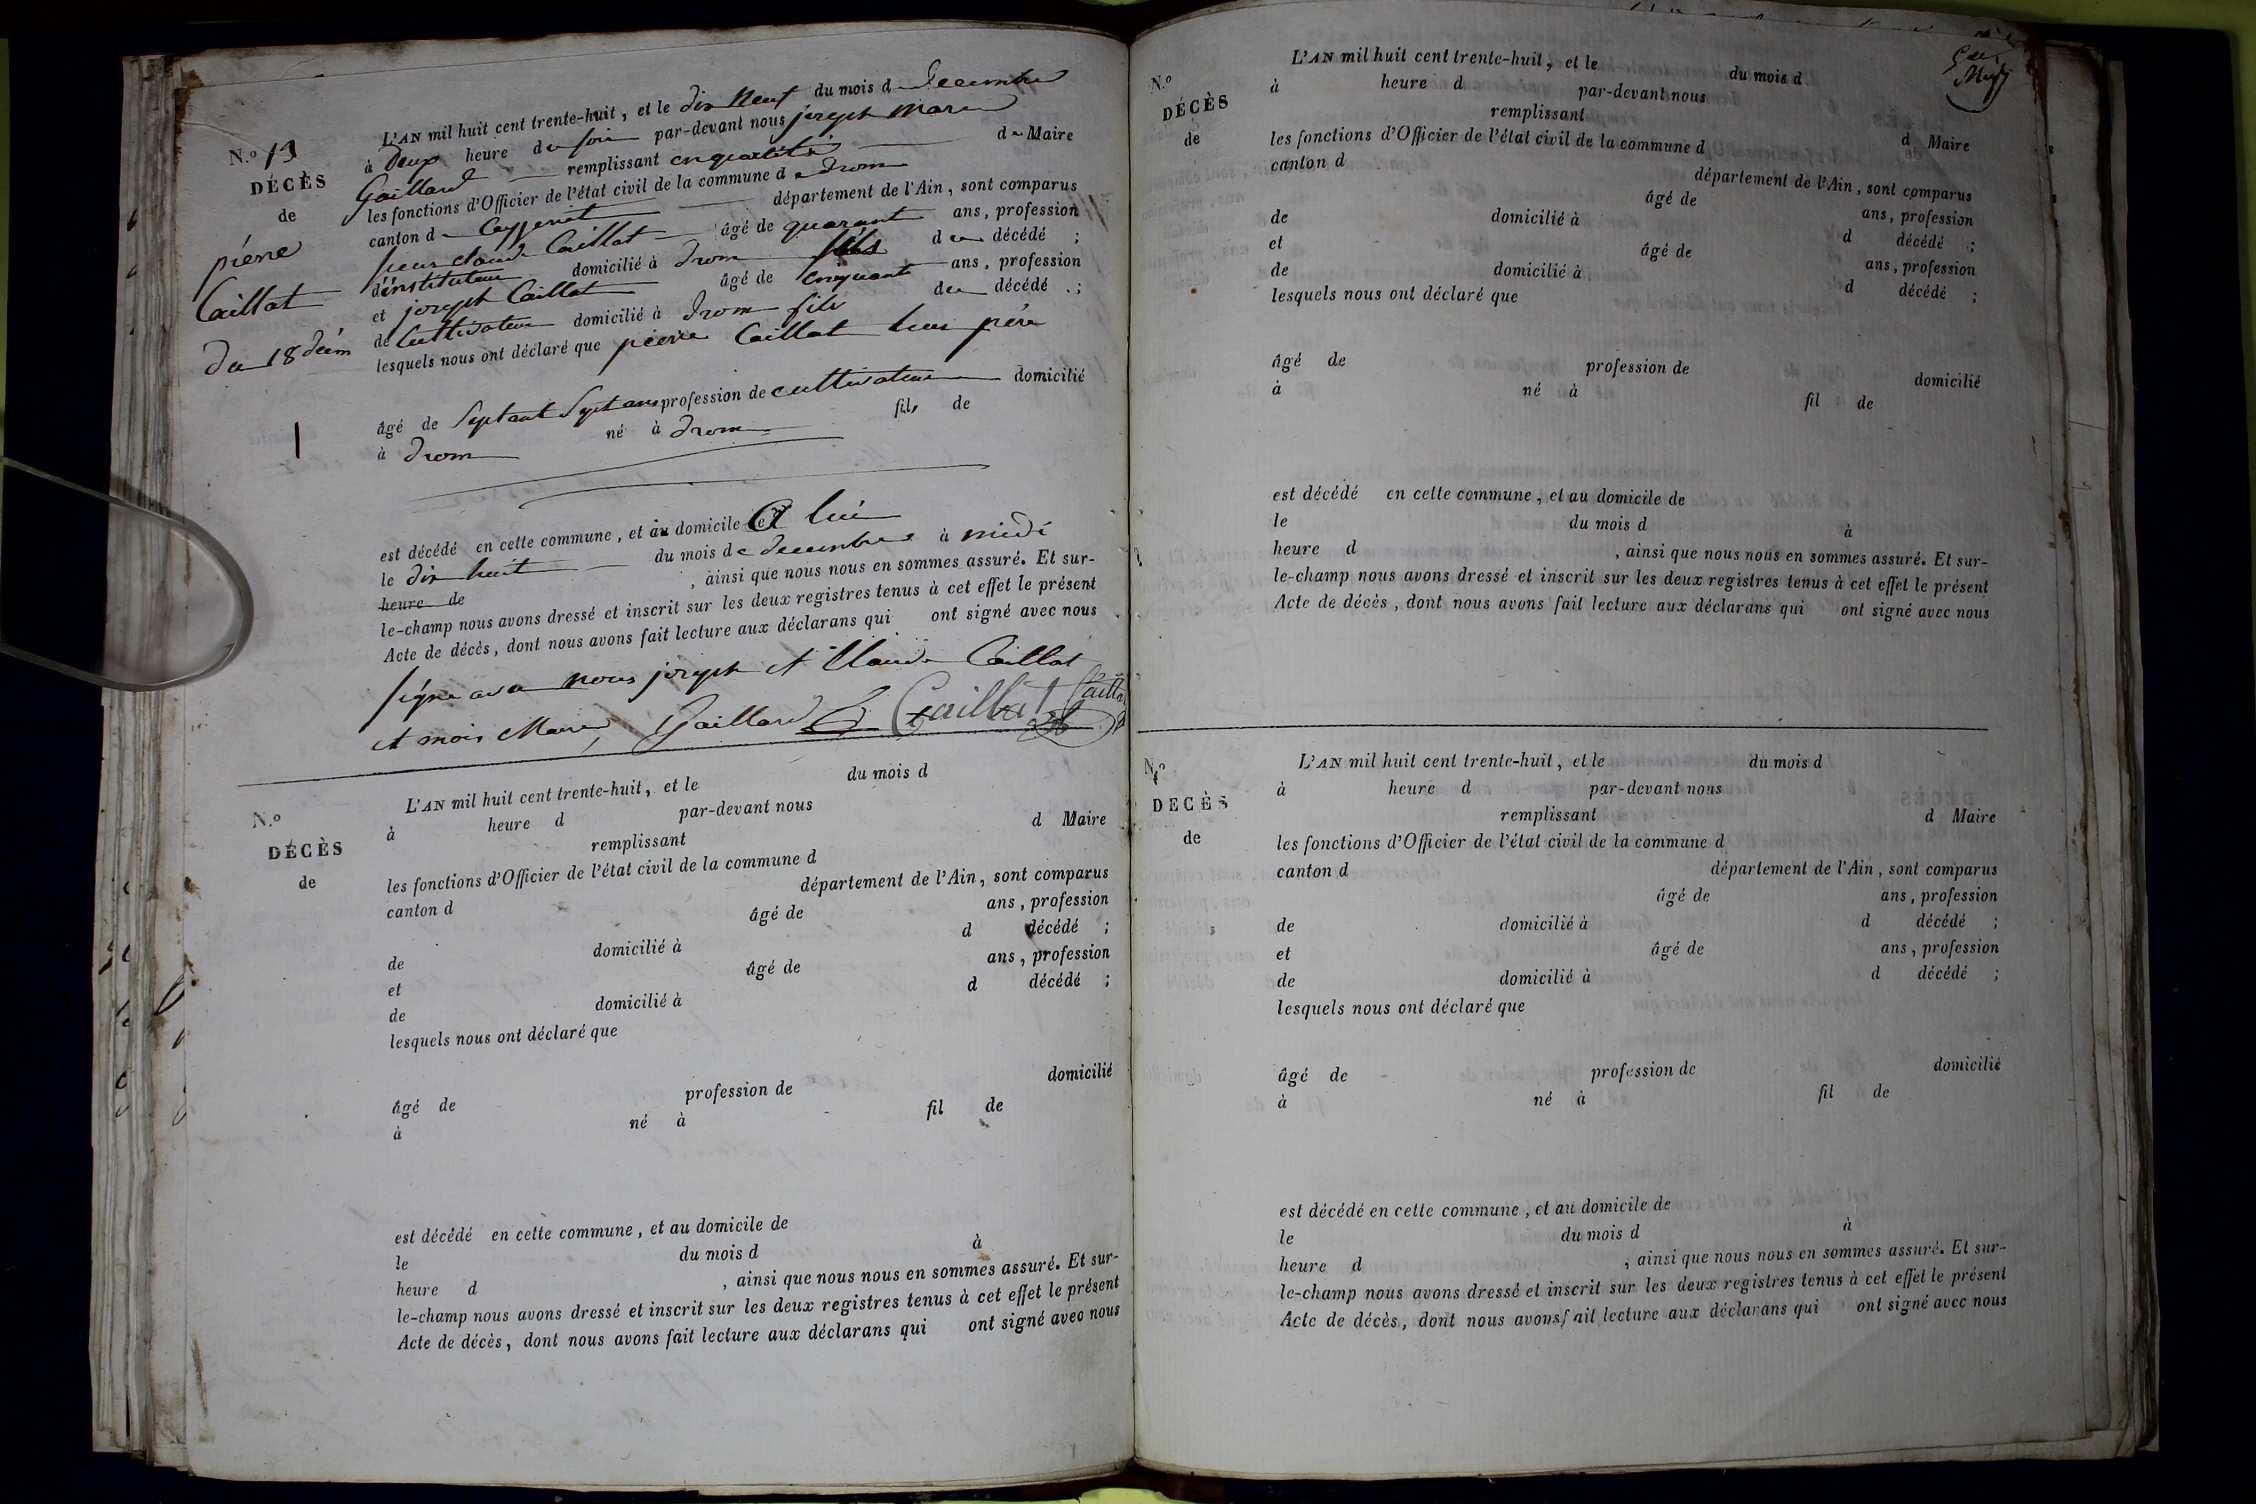 N.º 13
DÉCÈS
de
pierre
Caillat
du 18 décem
L'AN mil huit cent trente-huit, et le dix Neuf du mois de decembre
à deux heure du soir par-devant nous joseph Marie
Gaillard remplissant en qualité de Maire
les fonctions d'Officier de l'état civil de la commune de drom
canton de Ceyzeriat département de l'Ain, sont comparus
sieur claude Caillat âgé de quarant ans, profession
d'instituteur domicilié à drom fils du décédé ;
et joseph Caillat âgé de cinquant ans, profession
de Cultivateur domicilié à drom fils du décédé ;
lesquels nous ont déclaré que pierre Caillat leur père
âgé de Septant Sept ans profession de cultivateur domicilié
à drom né à drom fils de
est décédé en cette commune, et au domicile a lui
le dix huit du mois de decembre à midi
heure de , ainsi que nous nous en sommes assuré. Et sur-
le-champ nous avons dressé et inscrit sur les deux registres tenus à cet effet le présent
Acte de décès, dont nous avons fait lecture aux déclarans qui ont signé avec nous
signe avec nous joseph et Claude Caillat
et mois Maire Gaillard Caillat Caillat
N.º
DÉCÈS
de
L'AN mil huit cent trente-huit, et le du mois d
à heure d par-devant nous
remplissant d Maire
les fonctions d'Officier de l'état civil de la commune d
canton d département de l'Ain, sont comparus
âgé de ans, profession
de domicilié à d décédé ;
et âgé de ans, profession
de domicilié à d décédé ;
lesquels nous ont déclaré que
âgé de profession de domicilié
à né à fil de
est décédé en cette commune, et au domicile de
le du mois d à
heure d , ainsi que nous nous en sommes assuré. Et sur-
le-champ nous avons dressé et inscrit sur les deux registres tenus à cet effet le présent
Acte de décès, dont nous avons fait lecture aux déclarans qui ont signé avec nous
N.º
DÉCÈS
de
L'AN mil huit cent trente-huit, et le du mois d
à heure d par-devant nous
remplissant
les fonctions d'Officier de l'état civil de la commune d d Maire
canton d département de l'Ain, sont comparus
âgé de ans, profession
de domicilié à d décédé ;
et âgé de ans, profession
de domicilié à d décédé ;
lesquels nous ont déclaré que
âgé de profession de domicilié
à né à fil de
est décédé en cette commune, et au domicile de
le du mois d à
heure d , ainsi que nous nous en sommes assuré. Et sur-
le-champ nous avons dressé et inscrit sur les deux registres tenus à cet effet le présent
Acte de décès, dont nous avons fait lecture aux déclarans qui ont signé avec nous
N.º
DÉCÈS
de
L'AN mil huit cent trente-huit, et le du mois d
à heure d par-devant nous
remplissant d Maire
les fonctions d'Officier de l'état civil de la commune d
canton d département de l'Ain, sont comparus
âgé de ans, profession
de domicilié à d décédé ;
et âgé de ans, profession
de domicilié à d décédé ;
lesquels nous ont déclaré que
âgé de profession de domicilié
à né à fil de
est décédé en cette commune, et au domicile de
le du mois d à
heure d , ainsi que nous nous en sommes assuré. Et sur-
le-champ nous avons dressé et inscrit sur les deux registres tenus à cet effet le présent
Acte de décès, dont nous avons fait lecture aux déclarans qui ont signé avec nous